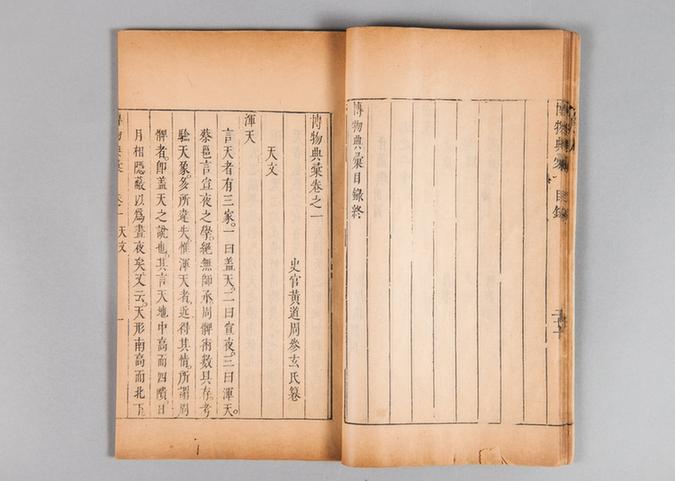 博物典彙 目錄
博物典彙目錄終
博物典彙卷之一
史官黃道周參玄氏纂
天文
渾天
言天者有三家。一曰盖天。二曰宣夜。三曰渾天。
蔡邕言宣夜之學。絕無師承周髀術數具存。考
驗天象。多所違失。惟渾天者。近得其情。所謂周
髀者。卽盖天之說也。其言天地中高而四隤。日
月相隱蔽以爲晝夜矣。又云。天形南高而北下
博物典彙 卷一 天文 一